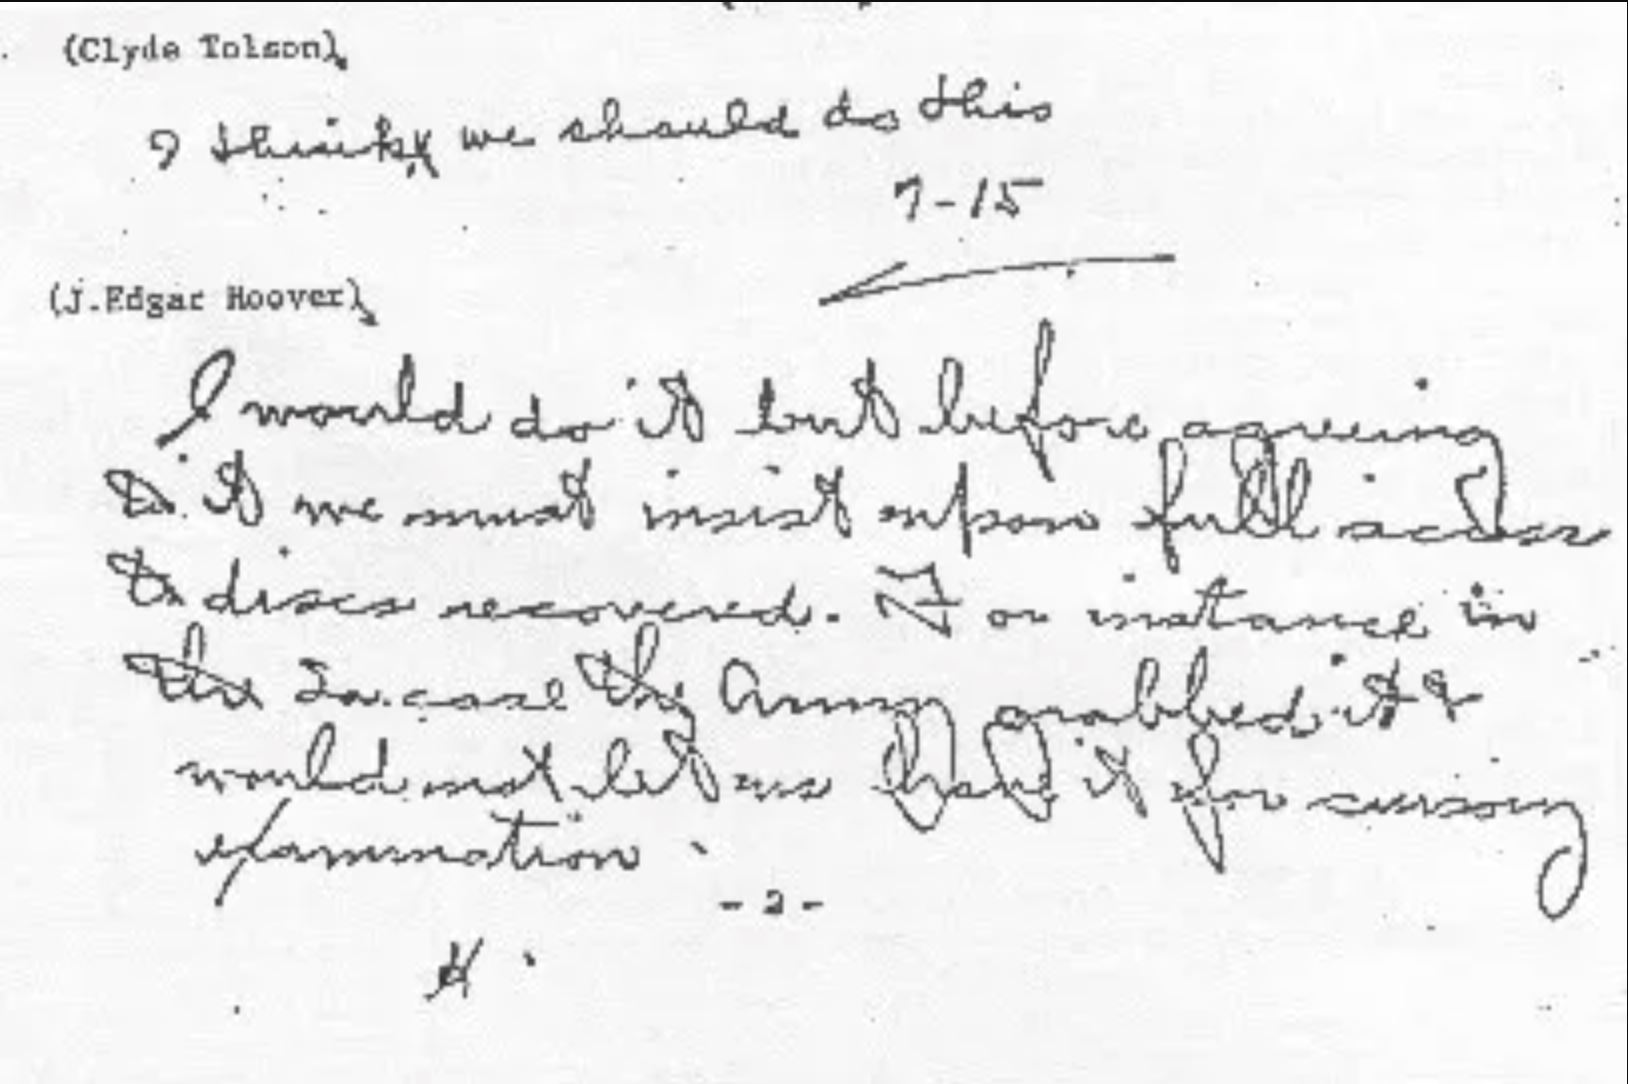 (Clyde Tolson)
I think we should do this
7-15
(J.Edgar Hoover)
I would do it but before agreeing
to it we must insist upon full access
to discs recovered. For instance in
the case the Army grabbed it &
would not let us have it for cursory
examination.
- 2 -
H